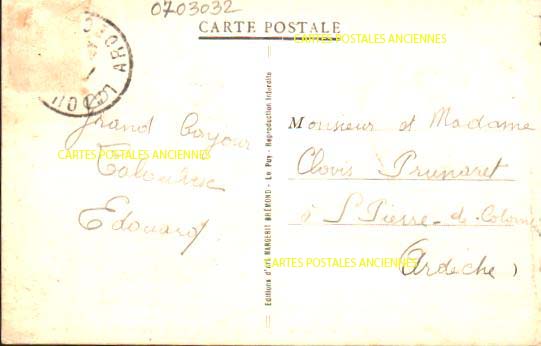 0703032
CARTE POSTALE
CARTES POSTALES ANCIENNES
Grand bonjour
CARTES POSTALES ANCIENNES
Edouard
Editions d'art MARGERIT BRÉMOND - Le Puy - Reproduction interdite
Monsieur et Madame
Clovis Prunaret
à St Pierre-de-Colombier
CARTES POSTALES ANCIENNES
(Ardèche)